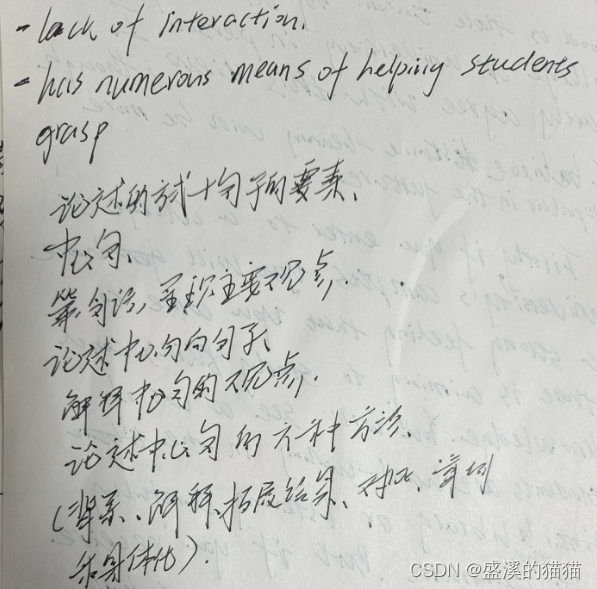 - lack of interaction.
- has numerous means of helping students
grasp
论述的方式十句子的要素、
中心句、
第一句话,呈现主要观点.
论述中心句的句子
解释中心句的观点.
论述中心句的六种方法、
(背景、解释、拓展结果、对比、举例
和具体化).
CSDN @盛溪的猫猫